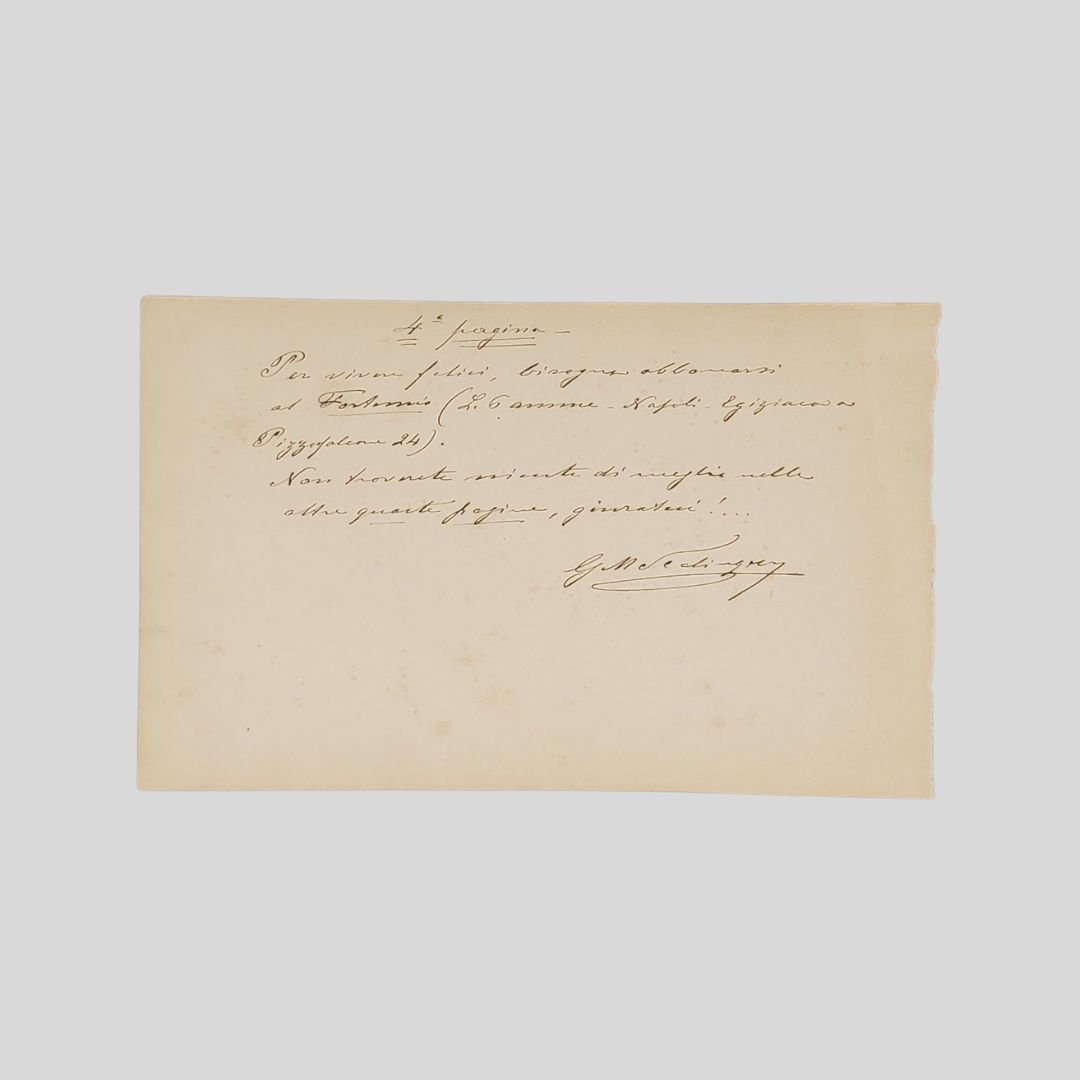 4ª pagina –
Per vivere felici, bisogna abbonarsi
al Fortunio (Napoli - Egiziaca a
Pizzofalcone 24).
Non troverete niente di meglio nelle
altre quarte pagine, giurateci!...